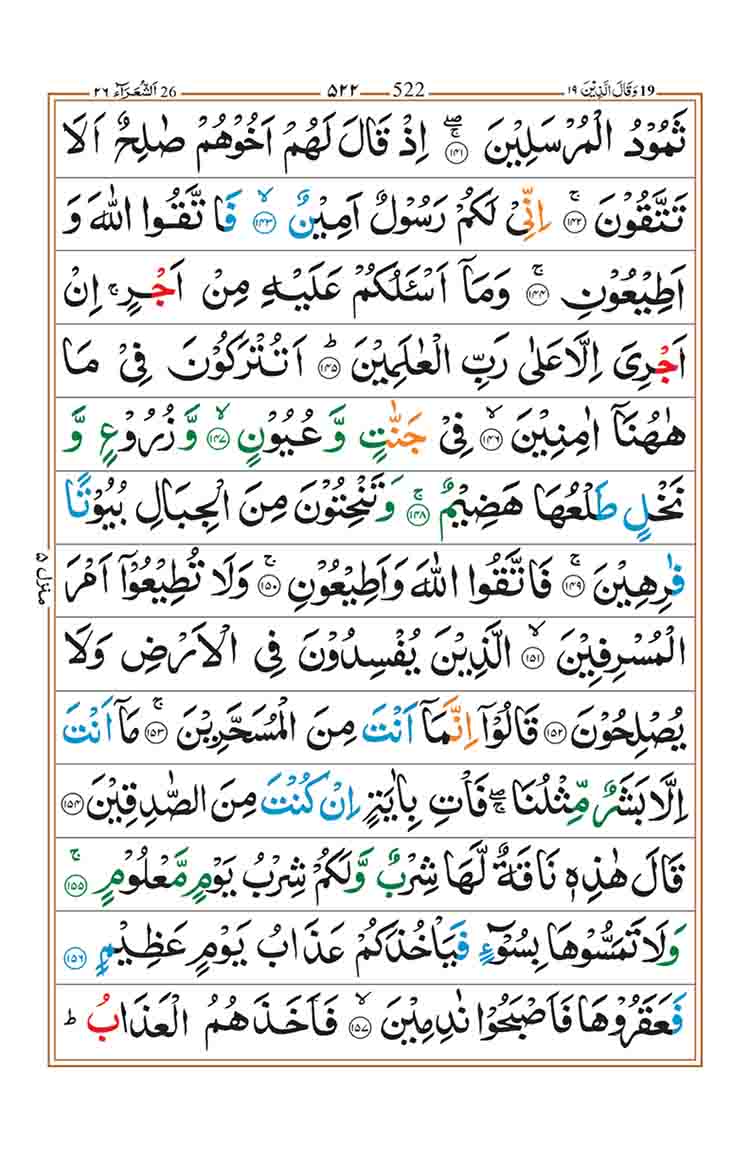 19 وَقَالَ الَّذِيْنَ ١٩ 522 ٥٢٢ 26 اَلشُّعَرَآء ٢٦
ثَمُوْدُ الْمُرْسَلِيْنَ ۚۖ ﴿١٤١﴾ اِذْ قَالَ لَهُمْ اَخُوْهُمْ صٰلِحٌ اَلَا
تَتَّقُوْنَ ۚ ﴿١٤٢﴾ اِنِّىْ لَكُمْ رَسُوْلٌ اَمِيْنٌ ۙ ﴿١٤٣﴾ فَاتَّقُوا اللّٰهَ وَ
اَطِيْعُوْنِ ۚ ﴿١٤٤﴾ وَمَاۤ اَسْـَٔلُكُمْ عَلَيْهِ مِنْ اَجْرٍ ۚ اِنْ
اَجْرِىَ اِلَّا عَلٰى رَبِّ الْعٰلَمِيْنَ ؕ ﴿١٤٥﴾ اَتُتْرَكُوْنَ فِىْ مَا
هٰهُنَاۤ اٰمِنِيْنَ ۙ ﴿١٤٦﴾ فِىْ جَنّٰتٍ وَّ عُيُوْنٍ ۙ ﴿١٤٧﴾ وَّ زُرُوْعٍ وَّ
نَخْلٍ طَلْعُهَا هَضِيْمٌ ۚ ﴿١٤٨﴾ وَتَنْحِتُوْنَ مِنَ الْجِبَالِ بُيُوْتًا
فٰرِهِيْنَ ۚ ﴿١٤٩﴾ فَاتَّقُوا اللّٰهَ وَاَطِيْعُوْنِ ۚ ﴿١٥٠﴾ وَلَا تُطِيْعُوْۤا اَمْرَ
الْمُسْرِفِيْنَ ۙ ﴿١٥١﴾ الَّذِيْنَ يُفْسِدُوْنَ فِى الْاَرْضِ وَلَا
يُصْلِحُوْنَ ﴿١٥٢﴾ قَالُوْۤا اِنَّمَاۤ اَنْتَ مِنَ الْمُسَحَّرِيْنَ ۚ ﴿١٥٣﴾ مَاۤ اَنْتَ
اِلَّا بَشَرٌ مِّثْلُنَا ۚۖ فَاْتِ بِاٰيَةٍ اِنْ كُنْتَ مِنَ الصّٰدِقِيْنَ ﴿١٥٤﴾
قَالَ هٰذِهٖ نَاقَةٌ لَّهَا شِرْبٌ وَّلَكُمْ شِرْبُ يَوْمٍ مَّعْلُوْمٍ ۚ ﴿١٥٥﴾
وَلَا تَمَسُّوْهَا بِسُوْٓءٍ فَيَاْخُذَكُمْ عَذَابُ يَوْمٍ عَظِيْمٍ ﴿١٥٦﴾
فَعَقَرُوْهَا فَاَصْبَحُوْا نٰدِمِيْنَ ۙ ﴿١٥٧﴾ فَاَخَذَهُمُ الْعَذَابُ ؕ
منزل ٥